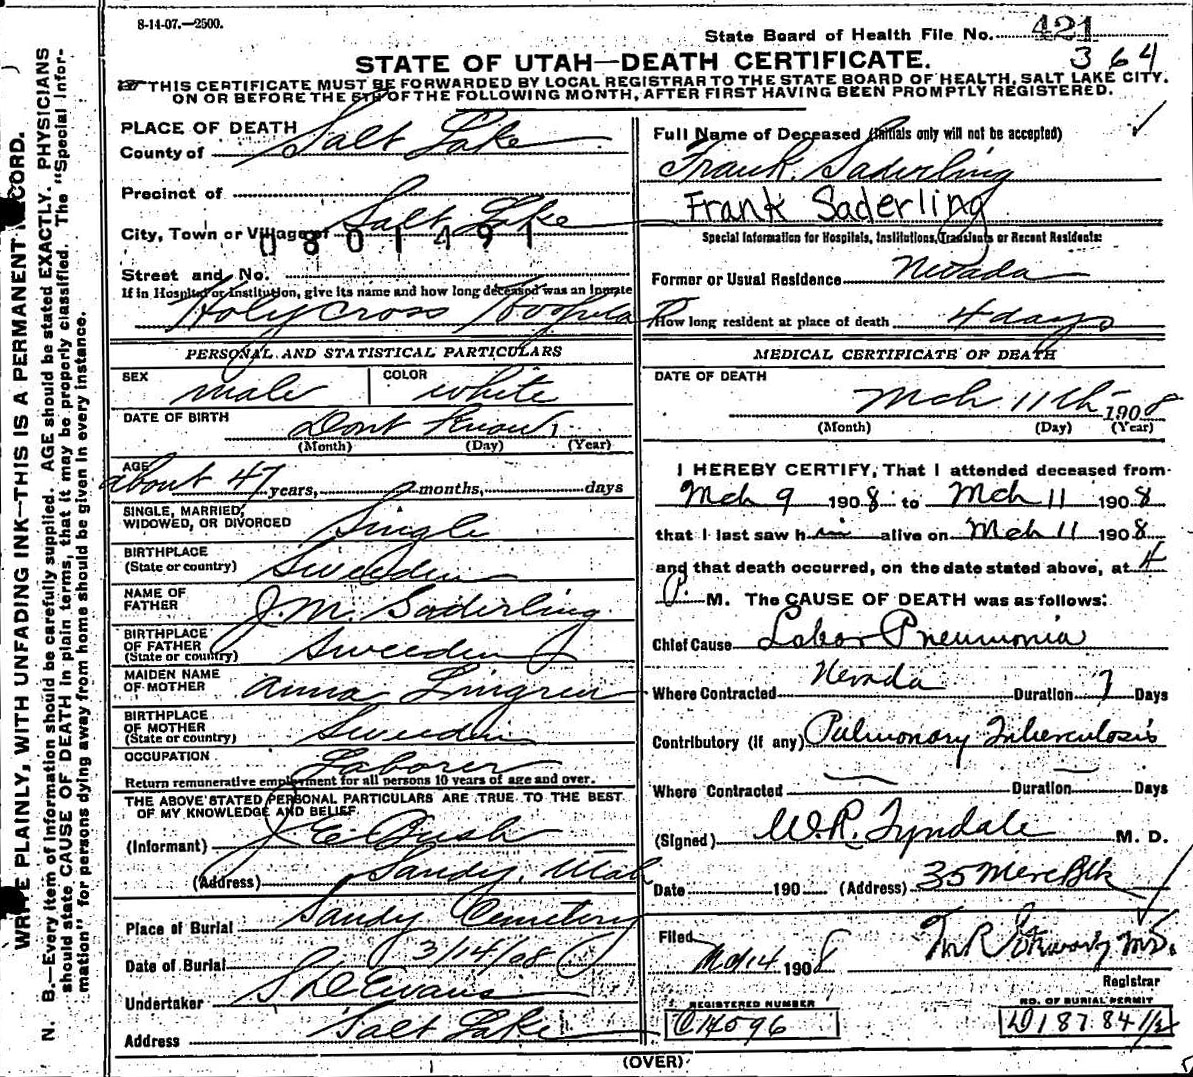 8-14-07.—2500.
State Board of Health File No. 421
364
STATE OF UTAH—DEATH CERTIFICATE.
THIS CERTIFICATE MUST BE FORWARDED BY LOCAL REGISTRAR TO THE STATE BOARD OF HEALTH, SALT LAKE CITY.
ON OR BEFORE THE 5TH OF THE FOLLOWING MONTH, AFTER FIRST HAVING BEEN PROMPTLY REGISTERED.
WRITE PLAINLY, WITH UNFADING INK—THIS IS A PERMANENT RECORD.
N. B.—Every item of information should be carefully supplied. AGE should be stated EXACTLY. PHYSICIANS
should state CAUSE OF DEATH in plain terms, that it may be properly classified. The "Special Infor-
mation" for persons dying away from home should be given in every instance.
PLACE OF DEATH
County of Salt Lake
Precinct of
City, Town or Village of Salt Lake
0801491
Street and No.
If in Hospital or Institution, give its name and how long deceased was an inmate
Holy Cross Hospital
PERSONAL AND STATISTICAL PARTICULARS
SEX male COLOR white
DATE OF BIRTH Dont Know
(Month) (Day) (Year)
AGE about 47 years, months, days
SINGLE, MARRIED,
WIDOWED, OR DIVORCED Single
BIRTHPLACE
(State or country) Sweeden
NAME OF
FATHER J. M. Saderling
BIRTHPLACE
OF FATHER
(State or country) Sweeden
MAIDEN NAME
OF MOTHER Anna Lingren
BIRTHPLACE
OF MOTHER
(State or country) Sweeden
OCCUPATION Laborer
Return remunerative employment for all persons 10 years of age and over.
THE ABOVE STATED PERSONAL PARTICULARS ARE TRUE TO THE BEST
OF MY KNOWLEDGE AND BELIEF
(Informant) J. E. Bush
(Address) Sandy, Utah
Place of Burial Sandy Cemetery
Date of Burial 3/14/08
Undertaker Evans
Address Salt Lake
Full Name of Deceased (Initials only will not be accepted)
Frank. Saderling
Frank Saderling
Special Information for Hospitals, Institutions, Transients or Recent Residents:
Former or Usual Residence Nevada
How long resident at place of death 4 days
MEDICAL CERTIFICATE OF DEATH
DATE OF DEATH
Mch 11th 1908
(Month) (Day) (Year)
I HEREBY CERTIFY, That I attended deceased from
Mch 9 1908 to Mch 11 1908
that I last saw him alive on Mch 11 1908
and that death occurred, on the date stated above, at 4
P. M. The CAUSE OF DEATH was as follows:
Chief Cause Lobar Pneumonia
Where Contracted Nevada Duration 7 Days
Contributory (if any) Pulmonary Tuberculosis
Where Contracted Duration Days
(Signed) W. R. Tyndale M. D.
Date 190 (Address) 35 Merc Blk
Filed Mch 14 1908
Registrar
REGISTERED NUMBER
C14596
NO. OF BURIAL PERMIT
D18784 1/2
(OVER)